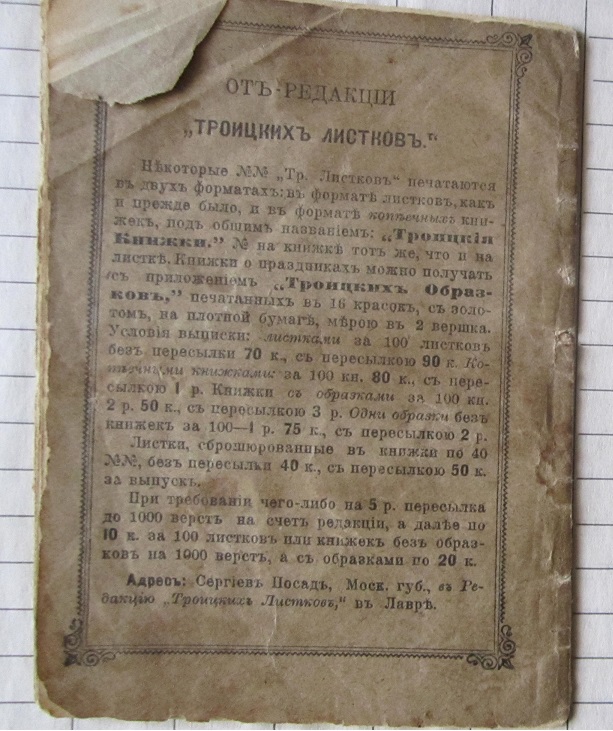 ОТЪ-РЕДАКЦІИ
„ТРОИЦКИХЪ ЛИСТКОВЪ.“
Нѣкоторые №№ „Тр. Листковъ“ печатаются
въ двухъ форматахъ: въ форматѣ листковъ, какъ
и прежде было, и въ форматѣ копѣечныхъ кни-
жекъ, подъ общимъ названіемъ: „Троицкія
Книжки,” № на книжкѣ тотъ же, что и на
листкѣ. Книжки о праздникахъ можно получать
съ приложеніемъ „Троицкихъ Образ-
ковъ,” печатанныхъ въ 16 красокъ, съ золо-
томъ, на плотной бумагѣ, мѣрою въ 2 вершка.
Условія выписки: листками за 100 листковъ
безъ пересылки 70 к., съ пересылкою 90 к. Ко-
пѣечными книжками: за 100 кн. 80 к., съ пере-
сылкою 1 р. Книжки съ образками за 100 кн.
2 р. 50 к., съ пересылкою 3 р. Одни образки безъ
книжекъ за 100—1 р. 75 к., съ пересылкою 2 р.
Листки, сброшюрованные въ книжки по 40
№№, безъ пересылки 40 к., съ пересылкою 50 к.
за выпускъ.
При требованіи чего-либо на 5 р. пересылка
до 1000 верстъ на счетъ редакціи, а далѣе по
10 к. за 100 листковъ или книжекъ безъ образ-
ковъ на 1000 верстъ, а съ образками по 20 к.
Адресъ: Сергіевъ Посадъ, Моск. губ., въ Ре-
дакцію „Троицкихъ Листковъ,” въ Лаврѣ.